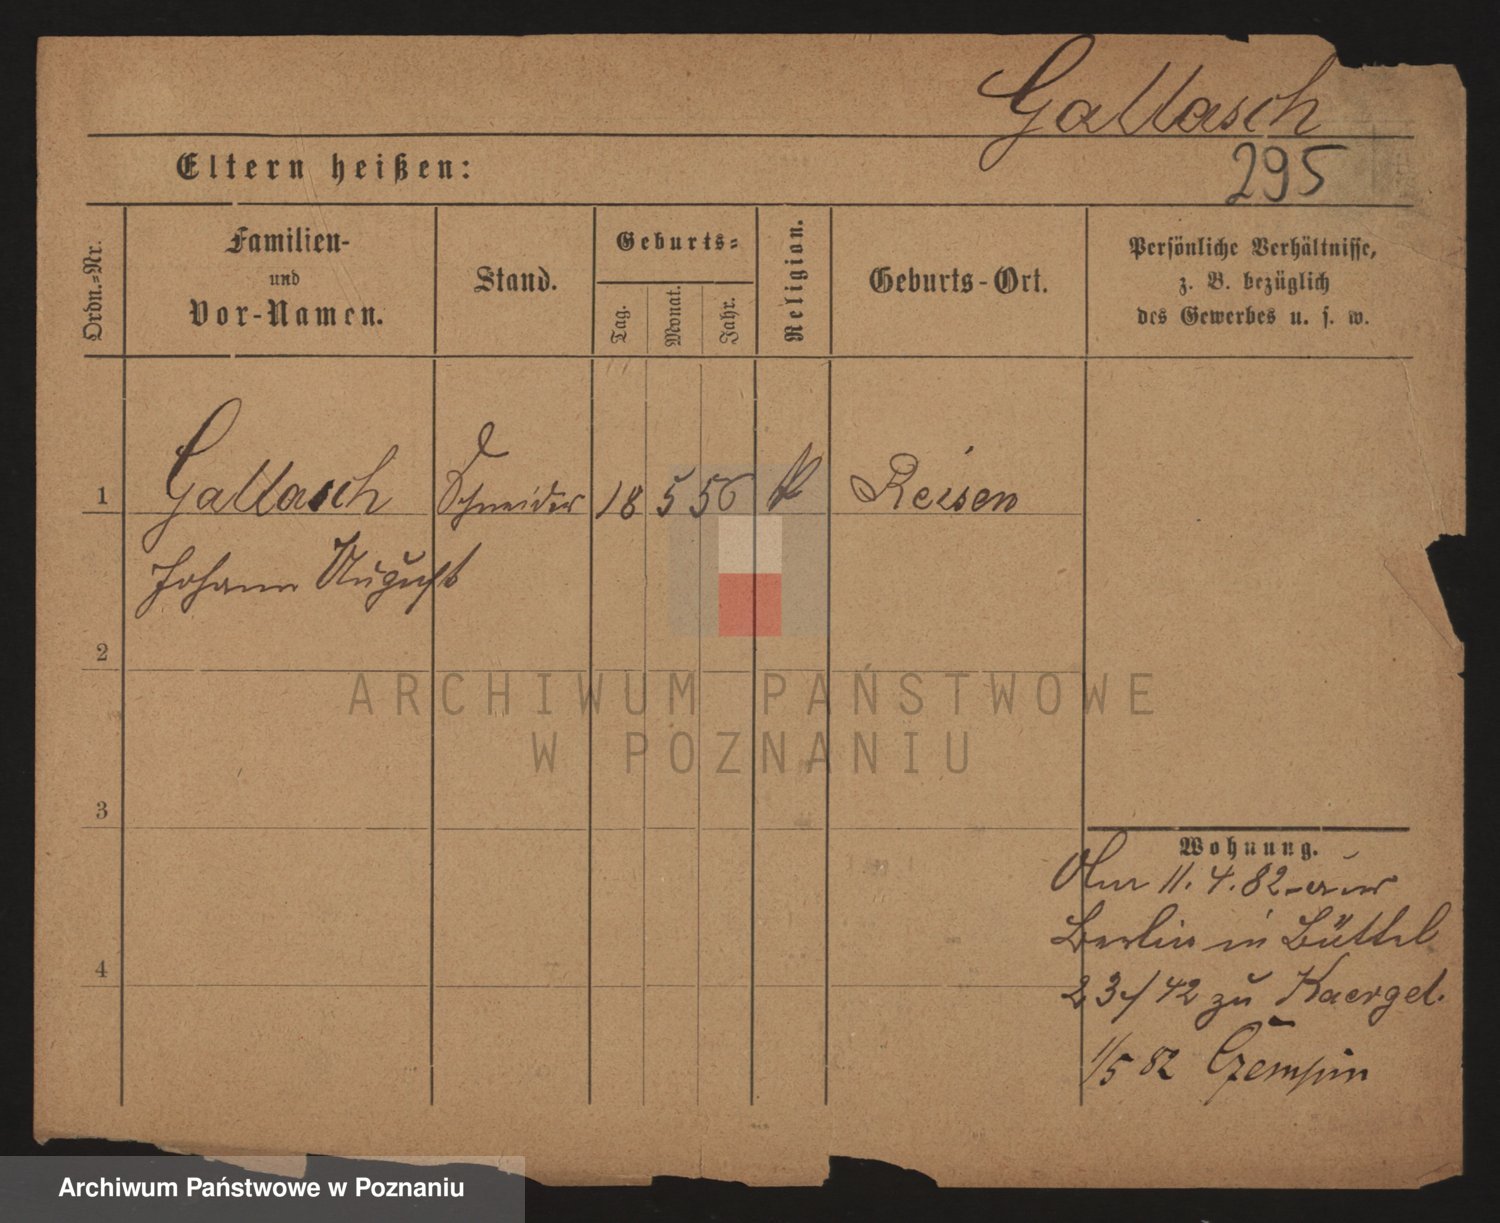 Gallasch
295
Eltern heißen:
Ordn.-Nr.
Familien-
und
Vor-Namen.
Stand.
Geburts-
Tag.
Monat.
Jahr.
Religion.
Geburts-Ort.
Persönliche Verhältnisse,
z. B. bezüglich
des Gewerbes u. s. w.
1 Gallasch Schneider 18 5 56 Reisen
Johann August
2
3
4
Wohnung.
11. 4. 82 aus
Berlin in Büttel
23/42 zu
1/5 82 Czempin
ARCHIWUM PAŃSTWOWE
W POZNANIU
Archiwum Państwowe w Poznaniu